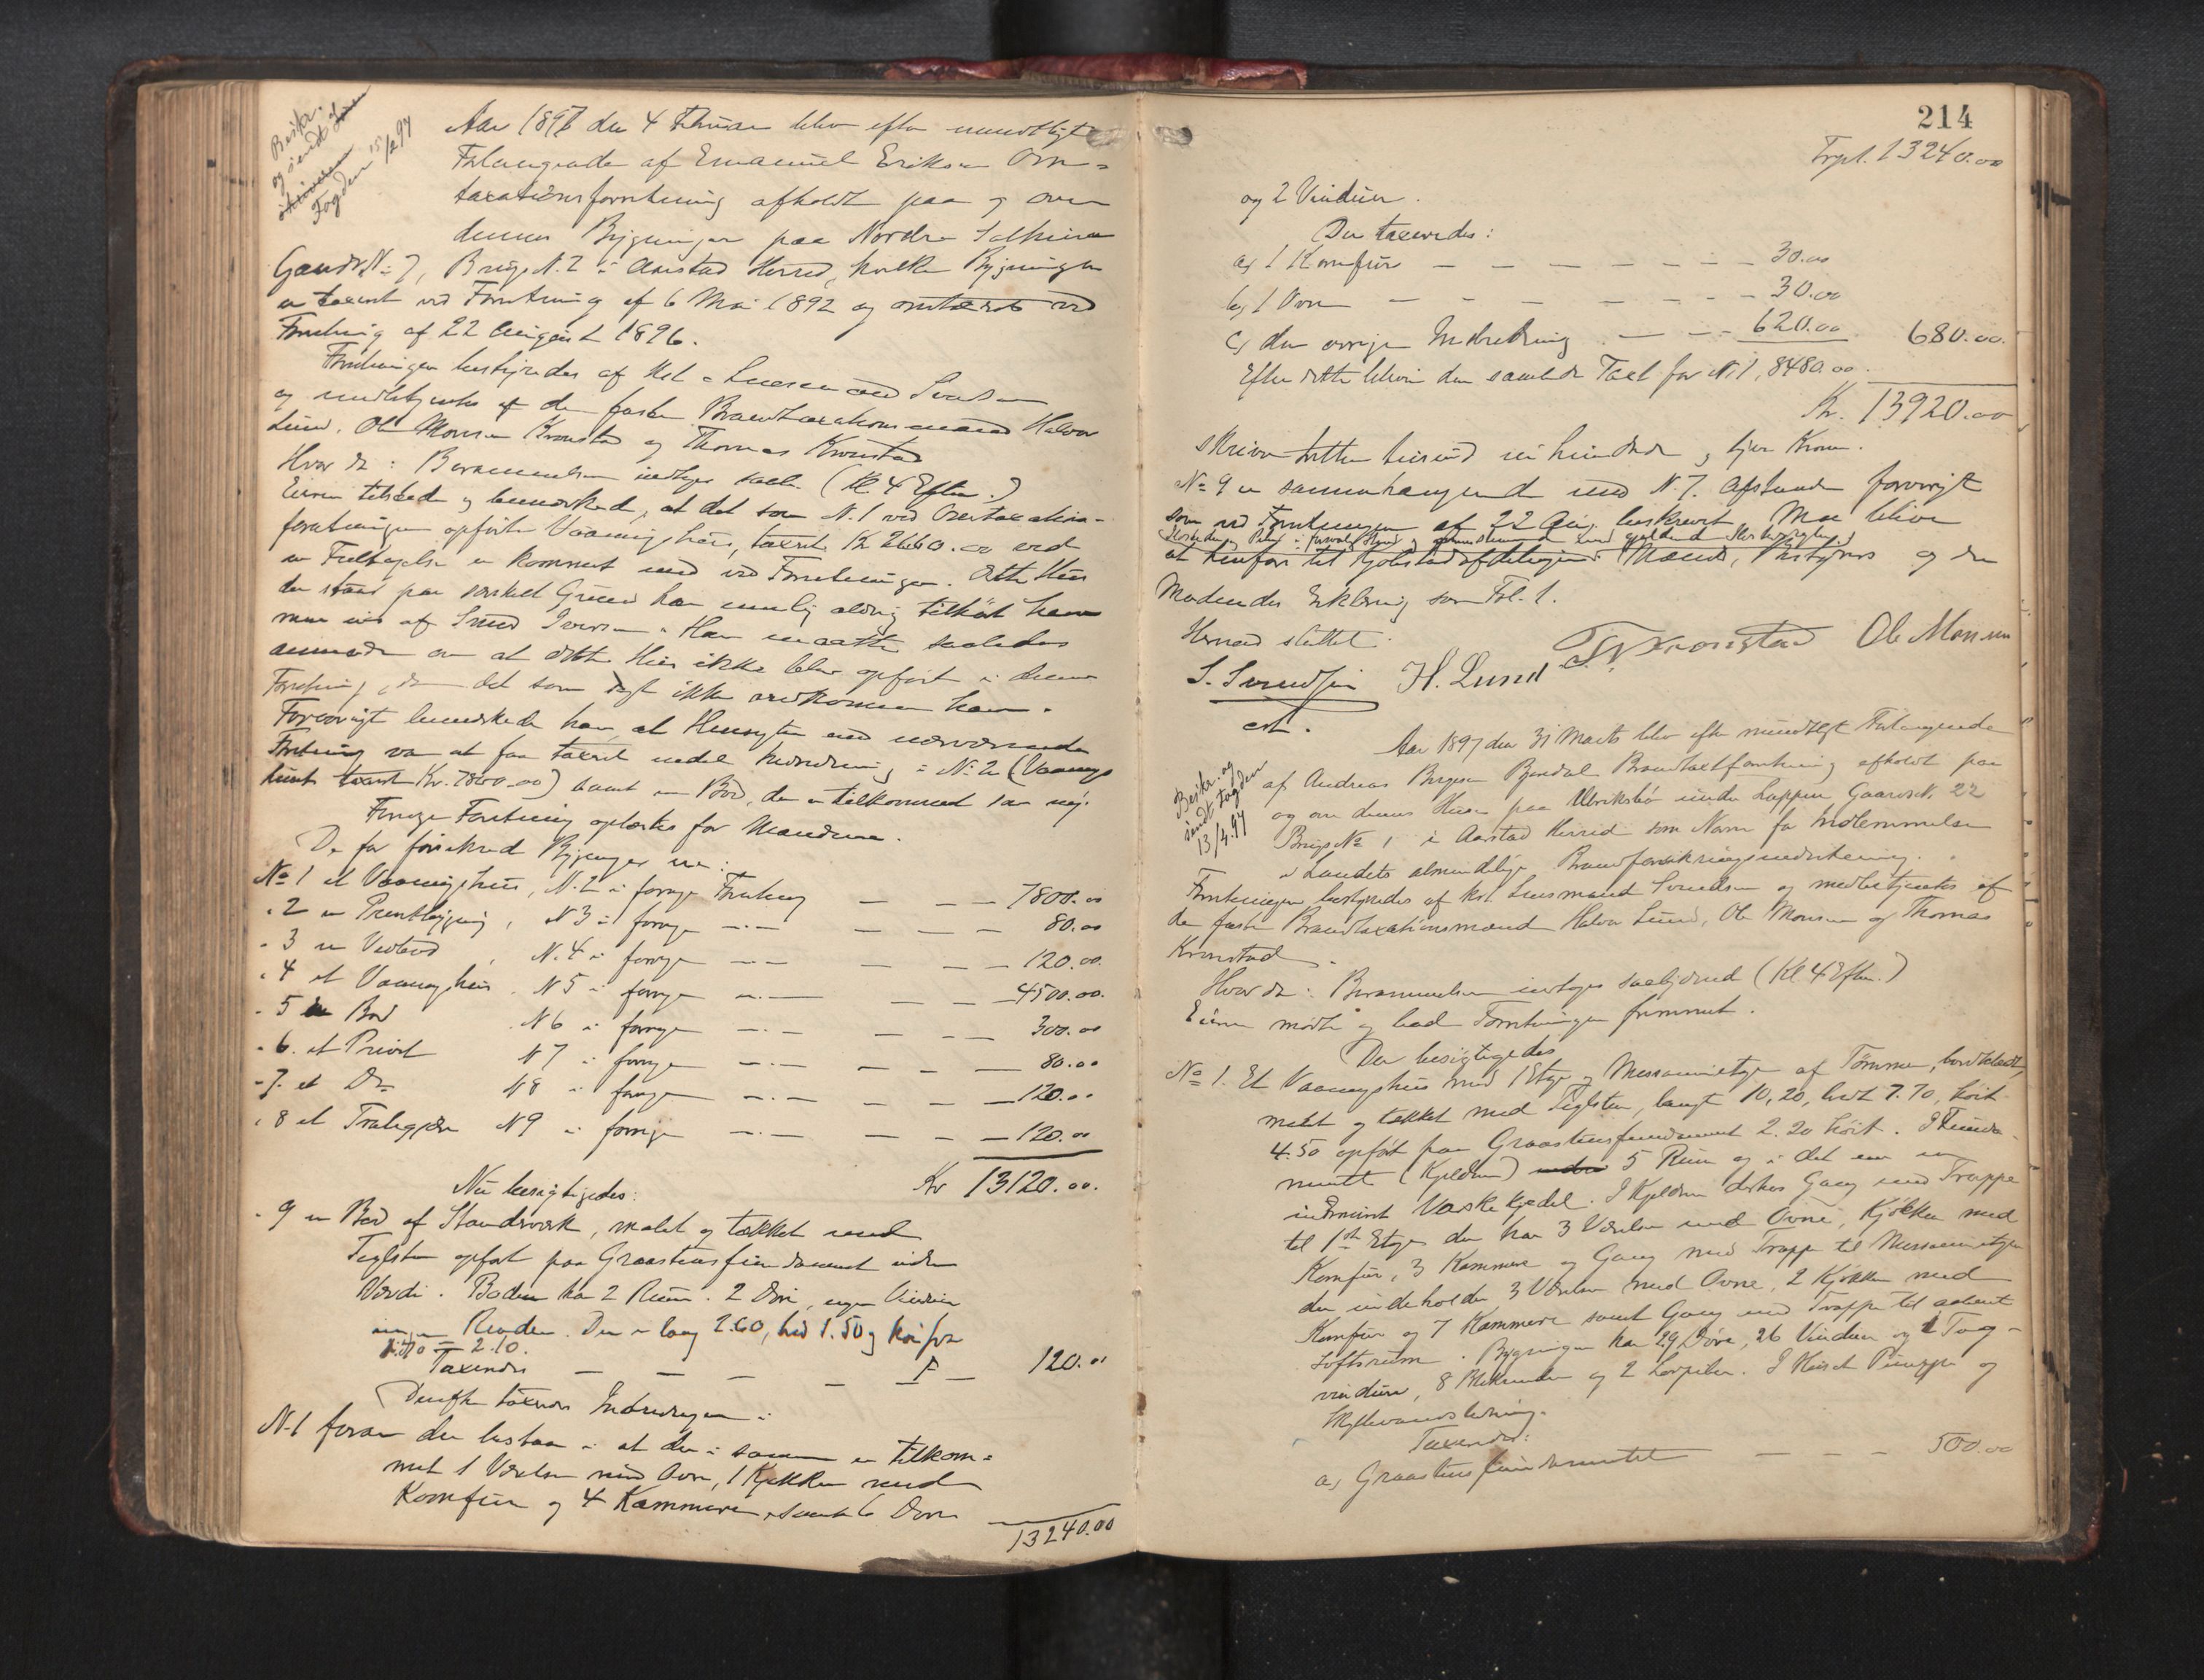 Beskr.
og sendt
Fogden 15/2 97
Aar 1897 den 4 Februar blev efter mundtligt
Forlangende af Emanuel Eriksen Om=
taxationsforretning afholdt paa og over
dennes Bygninger paa Nordre Solheim
Gaards No 7, Brugs N. 2 i Aarstad Herred, hvilke Bygninger
er taxeret ved Forretning af 6 Mai 1892 og omtaxeret ved
Forretning af 22 August 1896.
Forretningen bestyredes af Kst. Lensmand Svendsen
og medbetjentes af de faste Brandtaxationsmænd Halvor
Lund, Ole Monsen Kronstad og Thomas Kronstad
Hvor da: Berammelsen indtoges saal. (Kl. 4 Efterm.)
Eieren tilstede og bemærkede, at det som N. 1 ved Omtaxations-
forretningen opførte Vaaningshus, taxeret Kr 2660.00 ved
en Feiltagelse er kommet med ved Forretningen. Dette Hus
der staar paa særskilt Grund har nemlig aldrig tilhørt ham
men eies af Smed Iversen. Han maatte saaledes
anmode om at dette Hus ikke blev opført i denne
Forretning, da det som sagt ikke vedkommer ham.
Forøvrigt bemærkede han, at Hensigten med nærværende
Forretning var at faa taxeret endel Indredning i No 2 (Vaanings
huset taxeret Kr. 7800.00) samt en Bod, der er tilkommet som ny.
Forrige Forretning oplæstes for Mændene.
De før forsikrede Bygninger er:
No 1 et Vaaningshus, N. 2 i forrige Forretning — — — 7800.00
" 2 en Presetbygning, N 3 i forrige —·— — — — 80.00
" 3 en Vedbod, N. 4 i forrige —·— — — — 120.00.
" 4 et Vaaningshus N 5 i forrige —·— — — — 4500.00.
" 5 en Bod N 6 i forrige —·— — — — 300.00
" 6. et Privet N 7 i forrige —·— — — — 80.00
" 7. et Do N 8 i forrige —·— — — — 120.00
" 8 et Trætegjerde N 9 i forrige —·— — — — 120.00
Kr 13120.00.
Nu besigtigedes:
" 9 en Bod af Standværk, malet og tækket med
Teglsten opført paa Graastensfundament uden
Værdi. Boden har 2 Rum. 2 Døre, ingen Vinduer
ingen Render. Den er lang 2.60, bred 1.50 og høi fra
— 2.10.
Taxeredes — — — — — — 120.00
Derefter taxeredes Indredningen i
N. 1 foran der bestaar i at der i samme er tilkom=
met 1 Værelse med Ovn, 1 Kjøkken med
Komfur og 4 Kammere, samt 6 Døre
13240.00
214
Trpt. 13240.00
og 2 Vinduer.
Der taxeredes:
a, 1 Komfur — — — — — — — 30.00
b, 1 Ovn — — — — — — — 30.00
c, den øvrige Indredning — — — 620.00 680.00.
Efter dette bliver den samlede Taxt for N. 1, 8480.00.
Kr. 13920.00
skriver tretten tusind ni hundrede og tyve Kroner.
No 9 er sammenhængende med N. 7. Afstanden forøvrigt
som ved Forretningen af 22 Aug. beskrevet. Maa blive
at henføre til Kjøbstadafdelingen. Mænds, Bestyrers og den
Mødendes Erklæring som Fol. 1.
Hermed sluttet.
S. Svendsen H. Lund Th. Kronstad Ole Monsen
cst.
Beskr. og
sendt Fogden
13/4.97
Aar 1897 den 31 Marts blev efter mundtligt Forlangende
af Andreas Birgesen Bjøndal Brandtaxtforretning afholdt paa
og over dennes Huse paa Ulriksbø under Lappen Gaards N. 22
Brugs No 1 i Aarstad Herred som Norm for Indlemmelse
i Landets almindelige Brandforsikringsindretning.
Forretningen bestyredes af Kst. Lensmand Svendsen og medbetjentes af
de faste Brandtaxationsmænd Halvor Lund, Ole Monsen og Thomas
Kronstad.
Hvor da: Berammelsen indtoges saalydend (Kl 4 Efterm.)
Eieren mødte og bad Forretningen fremmet.
Der besigtigedes
No 1. Et Vaaningshus med 1 Etage og Messaninetage af Tømmer, bordklædt,
malet og tækket med Teglsten, langt 10,20, bredt 7.70, høit
4.50 opført paa Graastensfundament 2.20 høit. I Funda-
mentet (Kjelderen) 5 Rum og i det ene en
indmuret Vaskekjedel. I Kjelderen desuden Gang med Trappe
til 1ste Etage der har 3 Værelser med Ovne, Kjøkken med
Komfur, 3 Kammere og Gang med Trappe til Messaninetagen
der indeholder 3 Værelser med Ovne, 2 Kjøkken med
Komfur og 7 Kammere samt Gang med Trappe til aabent
Loftsrum. Bygningen har 29 Døre, 26 Vinduer og 1 Tag-
vindue, 8 Blikrender og 2 Lovpiber. I Huset Pumpe og
Skyllevandsledning.
Taxeredes:
a, Graastensfundamentet — — — 500.00